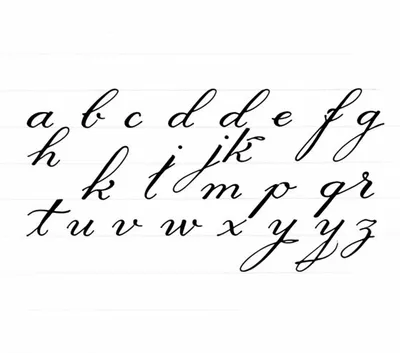 a b c d d e f g
h j jk
k l m p qr
t u v w x y y z